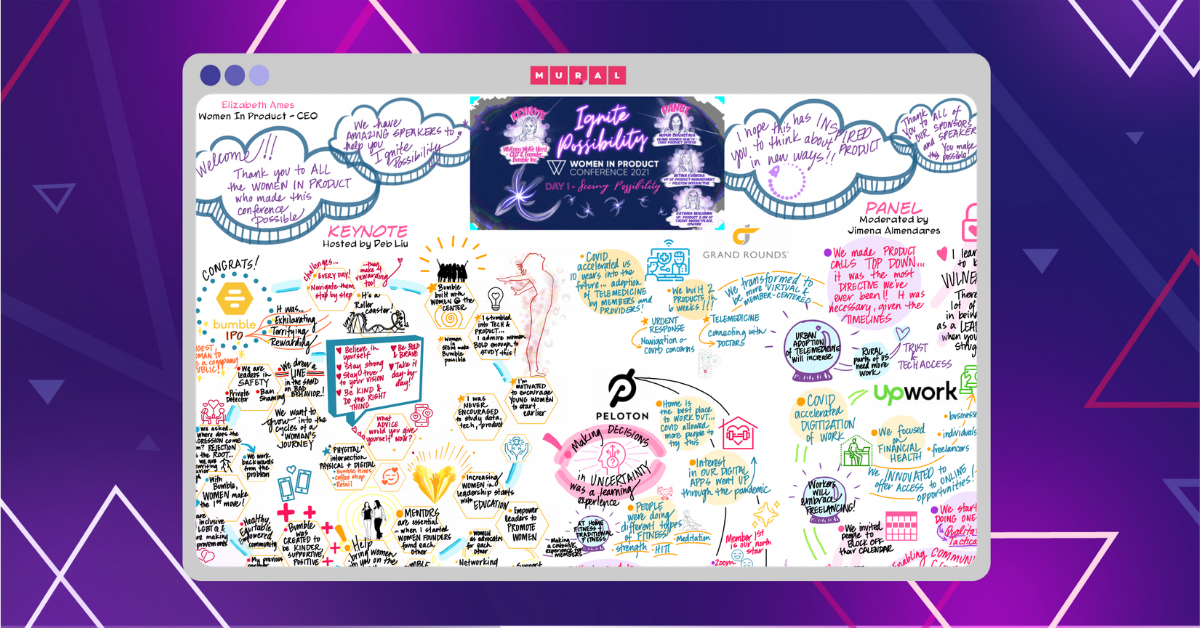 MURAL
Elizabeth Ames
Women In Product - CEO
Welcome!!!
Thank you to ALL
the WOMEN IN PRODUCT
who made this
conference
possible
We have
AMAZING SPEAKERS to
help you
Ignite
Possibility
KEYNOTE
Ignite
Possibility
WOMEN IN PRODUCT
CONFERENCE 2021
DAY 1 - Seeing Possibility
PANEL
I hope this has INSPIRED
you to think about PRODUCT
in new ways!!
Thank
you to ALL of
our SPONSORS
and SPEAKER
You make
this possible!
KEYNOTE
Hosted by Deb Liu
PANEL
Moderated by
Jimena Almendares
CONGRATS!
bumble
IPO
It was...
Exhilarating
Terrifying
Rewarding
challenges...
EVERY DAY!
Navigate them
step by step
then make it
rewarding
too!
It's a
Roller
coaster!
Bumble
built with
WOMEN @ the
CENTER
I stumbled
into TECH &
PRODUCT...
I admire women
BOLD enough to
STUDY this!
Women
make Bumble
possible
Believe in
yourself
Stay strong
Stay true
to your vision
Be KIND &
Do the RIGHT
THING
Be BOLD
& BRAVE
Take it
day-by-
day!
We are
leaders in
SAFETY
Private
Detector
Ban
Shaming
We drew a
LINE
in the SAND
on BAD
BEHAVIOR!
We want to
grow into the
cycles of a
WOMAN'S
JOURNEY
what
ADVICE
would you give
yourself NOW?
we work
backwards
from the
problem
With
Bumble,
WOMEN make
the 1st move!
"PHYGITAL"
intersection
PHYSICAL + DIGITAL
Coffee shop
Retail
I was
NEVER
ENCOURAGED
to study data,
tech, product
I'm
MOTIVATED
to encourage
YOUNG WOMEN
to start
earlier
Increasing
WOMEN in
leadership starts
with EDUCATION
Empower
leaders to
PROMOTE
WOMEN
MENTORS
are essential
when I started
WOMEN FOUNDERS
found each
other
Women
as advocates
for each
other
Networking
Bumble
was
CREATED to
be KINDER,
SUPPORTIVE,
POSITIVE
Healthy,
Equitable,
Empowered
community
Help
bring women
COVID
accelerated us
10 years into the
future... adoption
of TELEMEDICINE
by MEMBERS and
PROVIDERS!
GRAND ROUNDS
We built 2
PRODUCTS
6 weeks!!
URGENT
RESPONSE
Navigation of
COVID concerns
We transformed to
be more VIRTUAL &
MEMBER-CENTERED
TELEMEDICINE
Connecting with
DOCTORS
We made PRODUCT
CALLS TOP DOWN...
it was the most
DIRECTIVE we've
ever been!! It was
necessary, given the
TIMELINES
URBAN
ADOPTION
OF TELEMEDICINE
will increase
RURAL
parts of US
need more
work
TRUST
TECH ACCESS
PELOTON
MAKING DECISIONS
in UNCERTAINTY
was a learning
experience
Home is
the best place
to WORK OUT...
COVID allowed
more people to
try this
Interest
in OUR DIGITAL
APPS went UP
through the pandemic
PEOPLE
were doing
different types
of FITNESS
strength
HIIT
Meditation
AT HOME
FITNESS +
TRADITIONAL
FITNESS
Member 1st
is our north
star
Zoom
upwork
COVID
accelerated
DIGITIZATION
OF WORK
We focused
on
FINANCIAL
HEALTH
individuals
freelancers
We INNOVATED to
offer ACCESS to ONLINE
opportunities!
Workers
will
EMBRACE
FREELANCING!
We invited
people to
BLOCK OFF
their CALENDAR